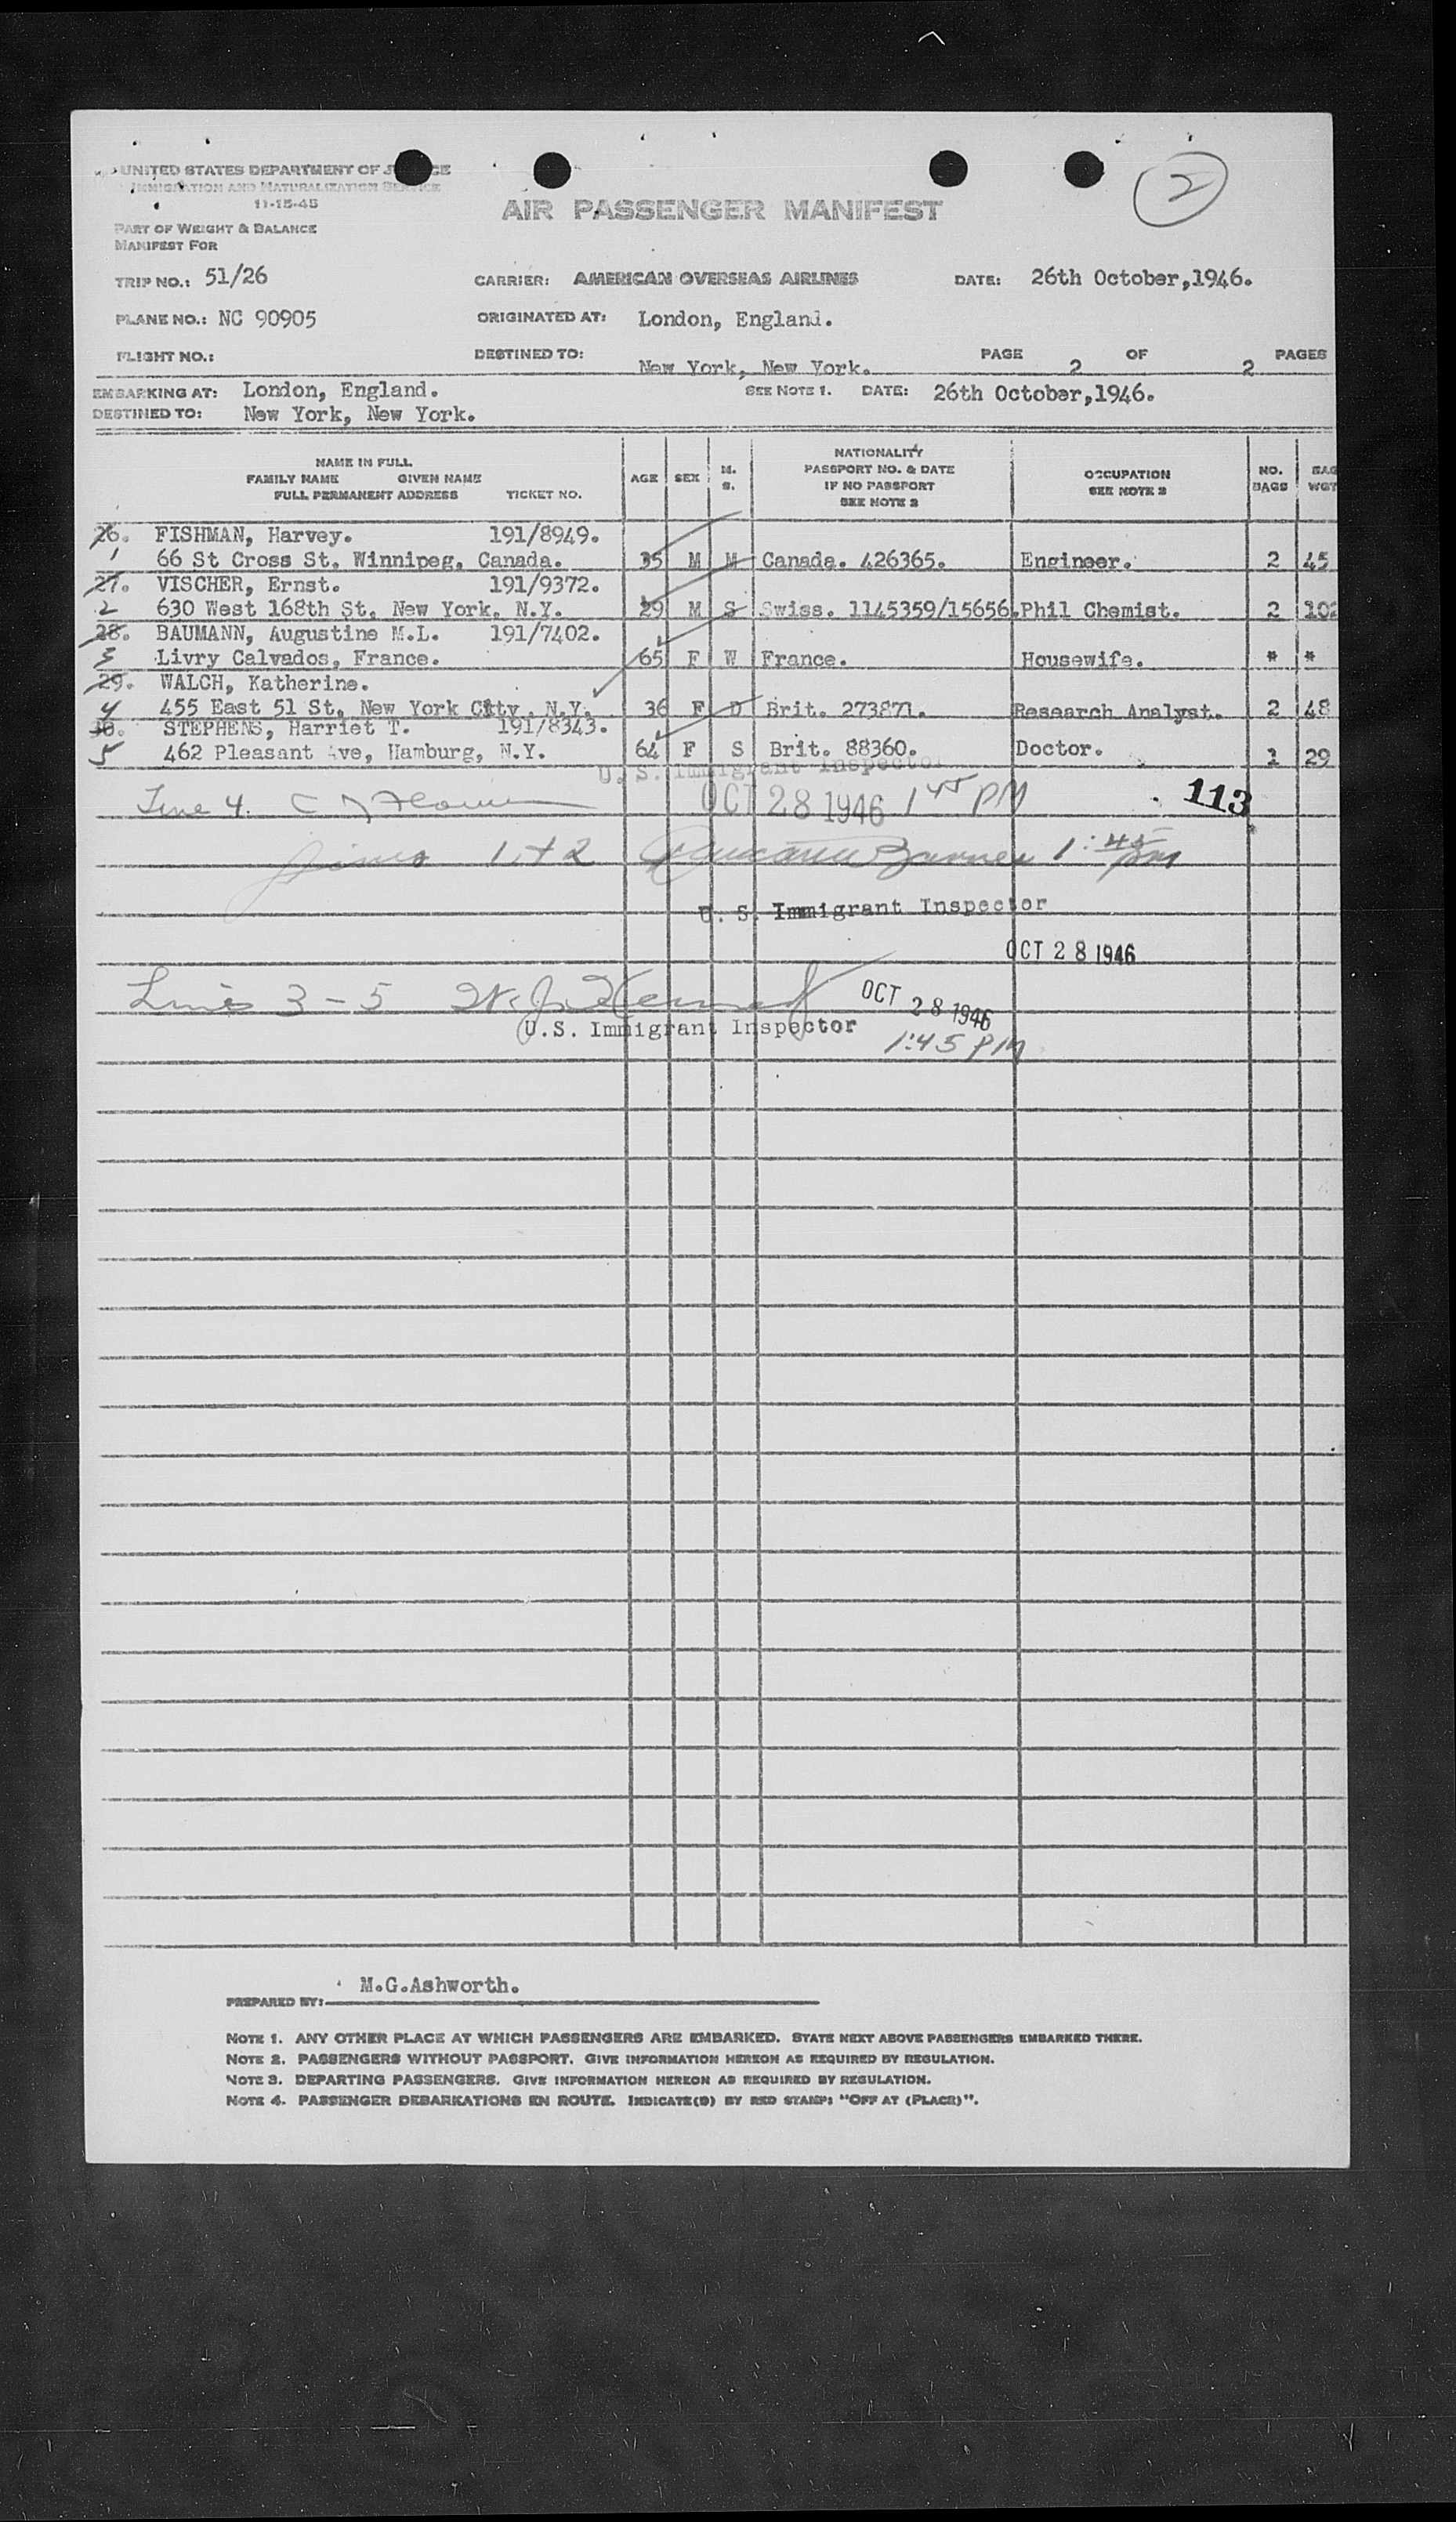 UNITED STATES DEPARTMENT OF J CE
IMMIGRATION AND NATURALIZATION SERVICE
11-15-45
2
AIR PASSENGER MANIFEST
PART OF WEIGHT & BALANCE
MANIFEST FOR
TRIP NO.: 51/26 CARRIER: AMERICAN OVERSEAS AIRLINES DATE: 26th October,1946.
PLANE NO.: NC 90905 ORIGINATED AT: London, England.
FLIGHT NO.: DESTINED TO: New York, New York. PAGE 2 OF 2 PAGES
EMBARKING AT: London, England. SEE NOTE 1. DATE: 26th October,1946.
DESTINED TO: New York, New York.
NAME IN FULL
FAMILY NAME GIVEN NAME
FULL PERMANENT ADDRESS TICKET NO.
AGE
SEX
M.
S.
NATIONALITY
PASSPORT NO. & DATE
IF NO PASSPORT
SEE NOTE 2
OCCUPATION
SEE NOTE 3
NO.
BAGS
BAG
WGT
26. FISHMAN, Harvey. 191/8949.
1 66 St Cross St, Winnipeg, Canada. 35 M M Canada. 426365. Engineer. 2 45
27. VISCHER, Ernst. 191/9372.
2 630 West 168th St, New York, N.Y. 29 M S Swiss. 1145359/15656. Phil Chemist. 2 102
28. BAUMANN, Augustine M.L. 191/7402.
3 Livry Calvados, France. 65 F W France. Housewife. * *
29. WALCH, Katherine.
4 455 East 51 St, New York City, N.Y. 36 F D Brit. 273871. Research Analyst. 2 48
30. STEPHENS, Harriet T. 191/8343.
5 462 Pleasant Ave, Hamburg, N.Y. 64 F S Brit. 88360. Doctor. 1 29
U. S. Immigrant Inspector
Line 4. OCT 28 1946 1 45 PM 113
Lines 1 + 2 1:45 pm
U. S. Immigrant Inspector
OCT 28 1946
Lines 3 - 5 OCT 28 1946
U.S. Immigrant Inspector 1:45 PM
M.G.Ashworth.
PREPARED BY:
NOTE 1. ANY OTHER PLACE AT WHICH PASSENGERS ARE EMBARKED. STATE NEXT ABOVE PASSENGERS EMBARKED THERE.
NOTE 2. PASSENGERS WITHOUT PASSPORT. GIVE INFORMATION HEREON AS REQUIRED BY REGULATION.
NOTE 3. DEPARTING PASSENGERS. GIVE INFORMATION HEREON AS REQUIRED BY REGULATION.
NOTE 4. PASSENGER DEBARKATIONS EN ROUTE. INDICATE(D) BY RED STAMP: "OFF AT (PLACE)".